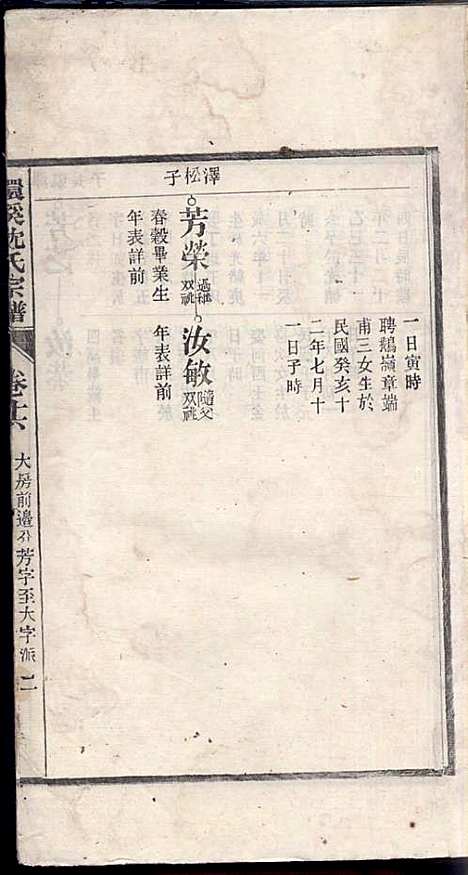 一日寅時
聘鵝嶺章端
甫三女生於
民國癸亥十
二年七月十
一日子時
澤松子
芳榮
過稚
双祧
春穀畢業生
年表詳前
汝敏
隨父
双祧
年表詳前
環溪沈氏宗譜
卷廿六
大房前邉分芳字至大字派
二